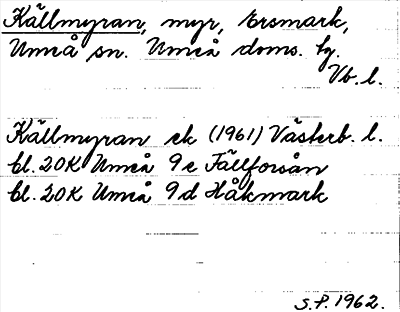 Källmyran, myr, Ersmark,
Umeå sn. Umeå doms. tg.
Vb. l.
Källmyran ek (1961) Västerb. l.
bl. 20K Umeå 9c Fällforsån
bl. 20K Umeå 9d Håkmark
S.P. 1962.